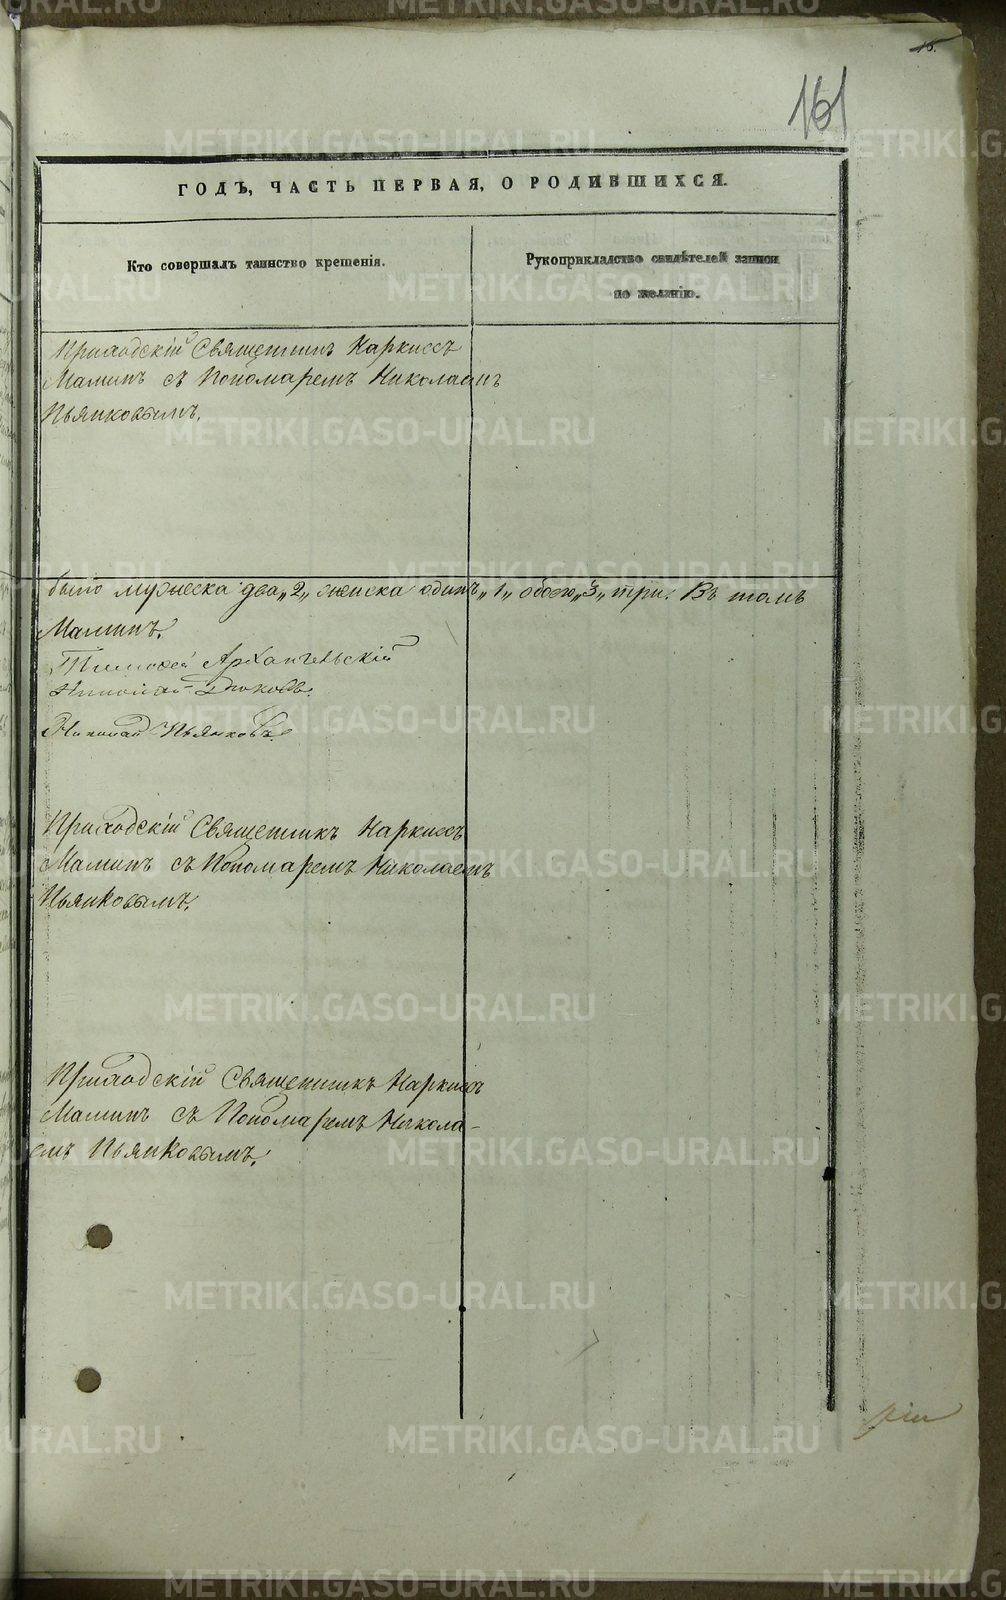 16.
161
ГОДЪ, ЧАСТЬ ПЕРВАЯ, О РОДИВШИХСЯ.
Кто совершалъ таинство крещенія.
Рукоприкладство свидѣтелей записи
по желанію.
Приходскій Священникъ Наркиссъ
Маминъ съ Пономаремъ Николаемъ
Пьянковымъ.
было мужеска два „2„ женска одинъ „1„ обоего „3„ три. Въ томъ
Маминъ.
Тимофей Архангельскій
Николай Дюковъ.
Николай Пьянковъ.
Приходскій Священникъ Наркиссъ
Маминъ съ Пономаремъ Николаемъ
Пьянковымъ.
Приходскій Священникъ Наркиссъ
Маминъ съ Пономаремъ Никола-
емъ Пьянковымъ.
METRIKI.GASO-URAL.RU